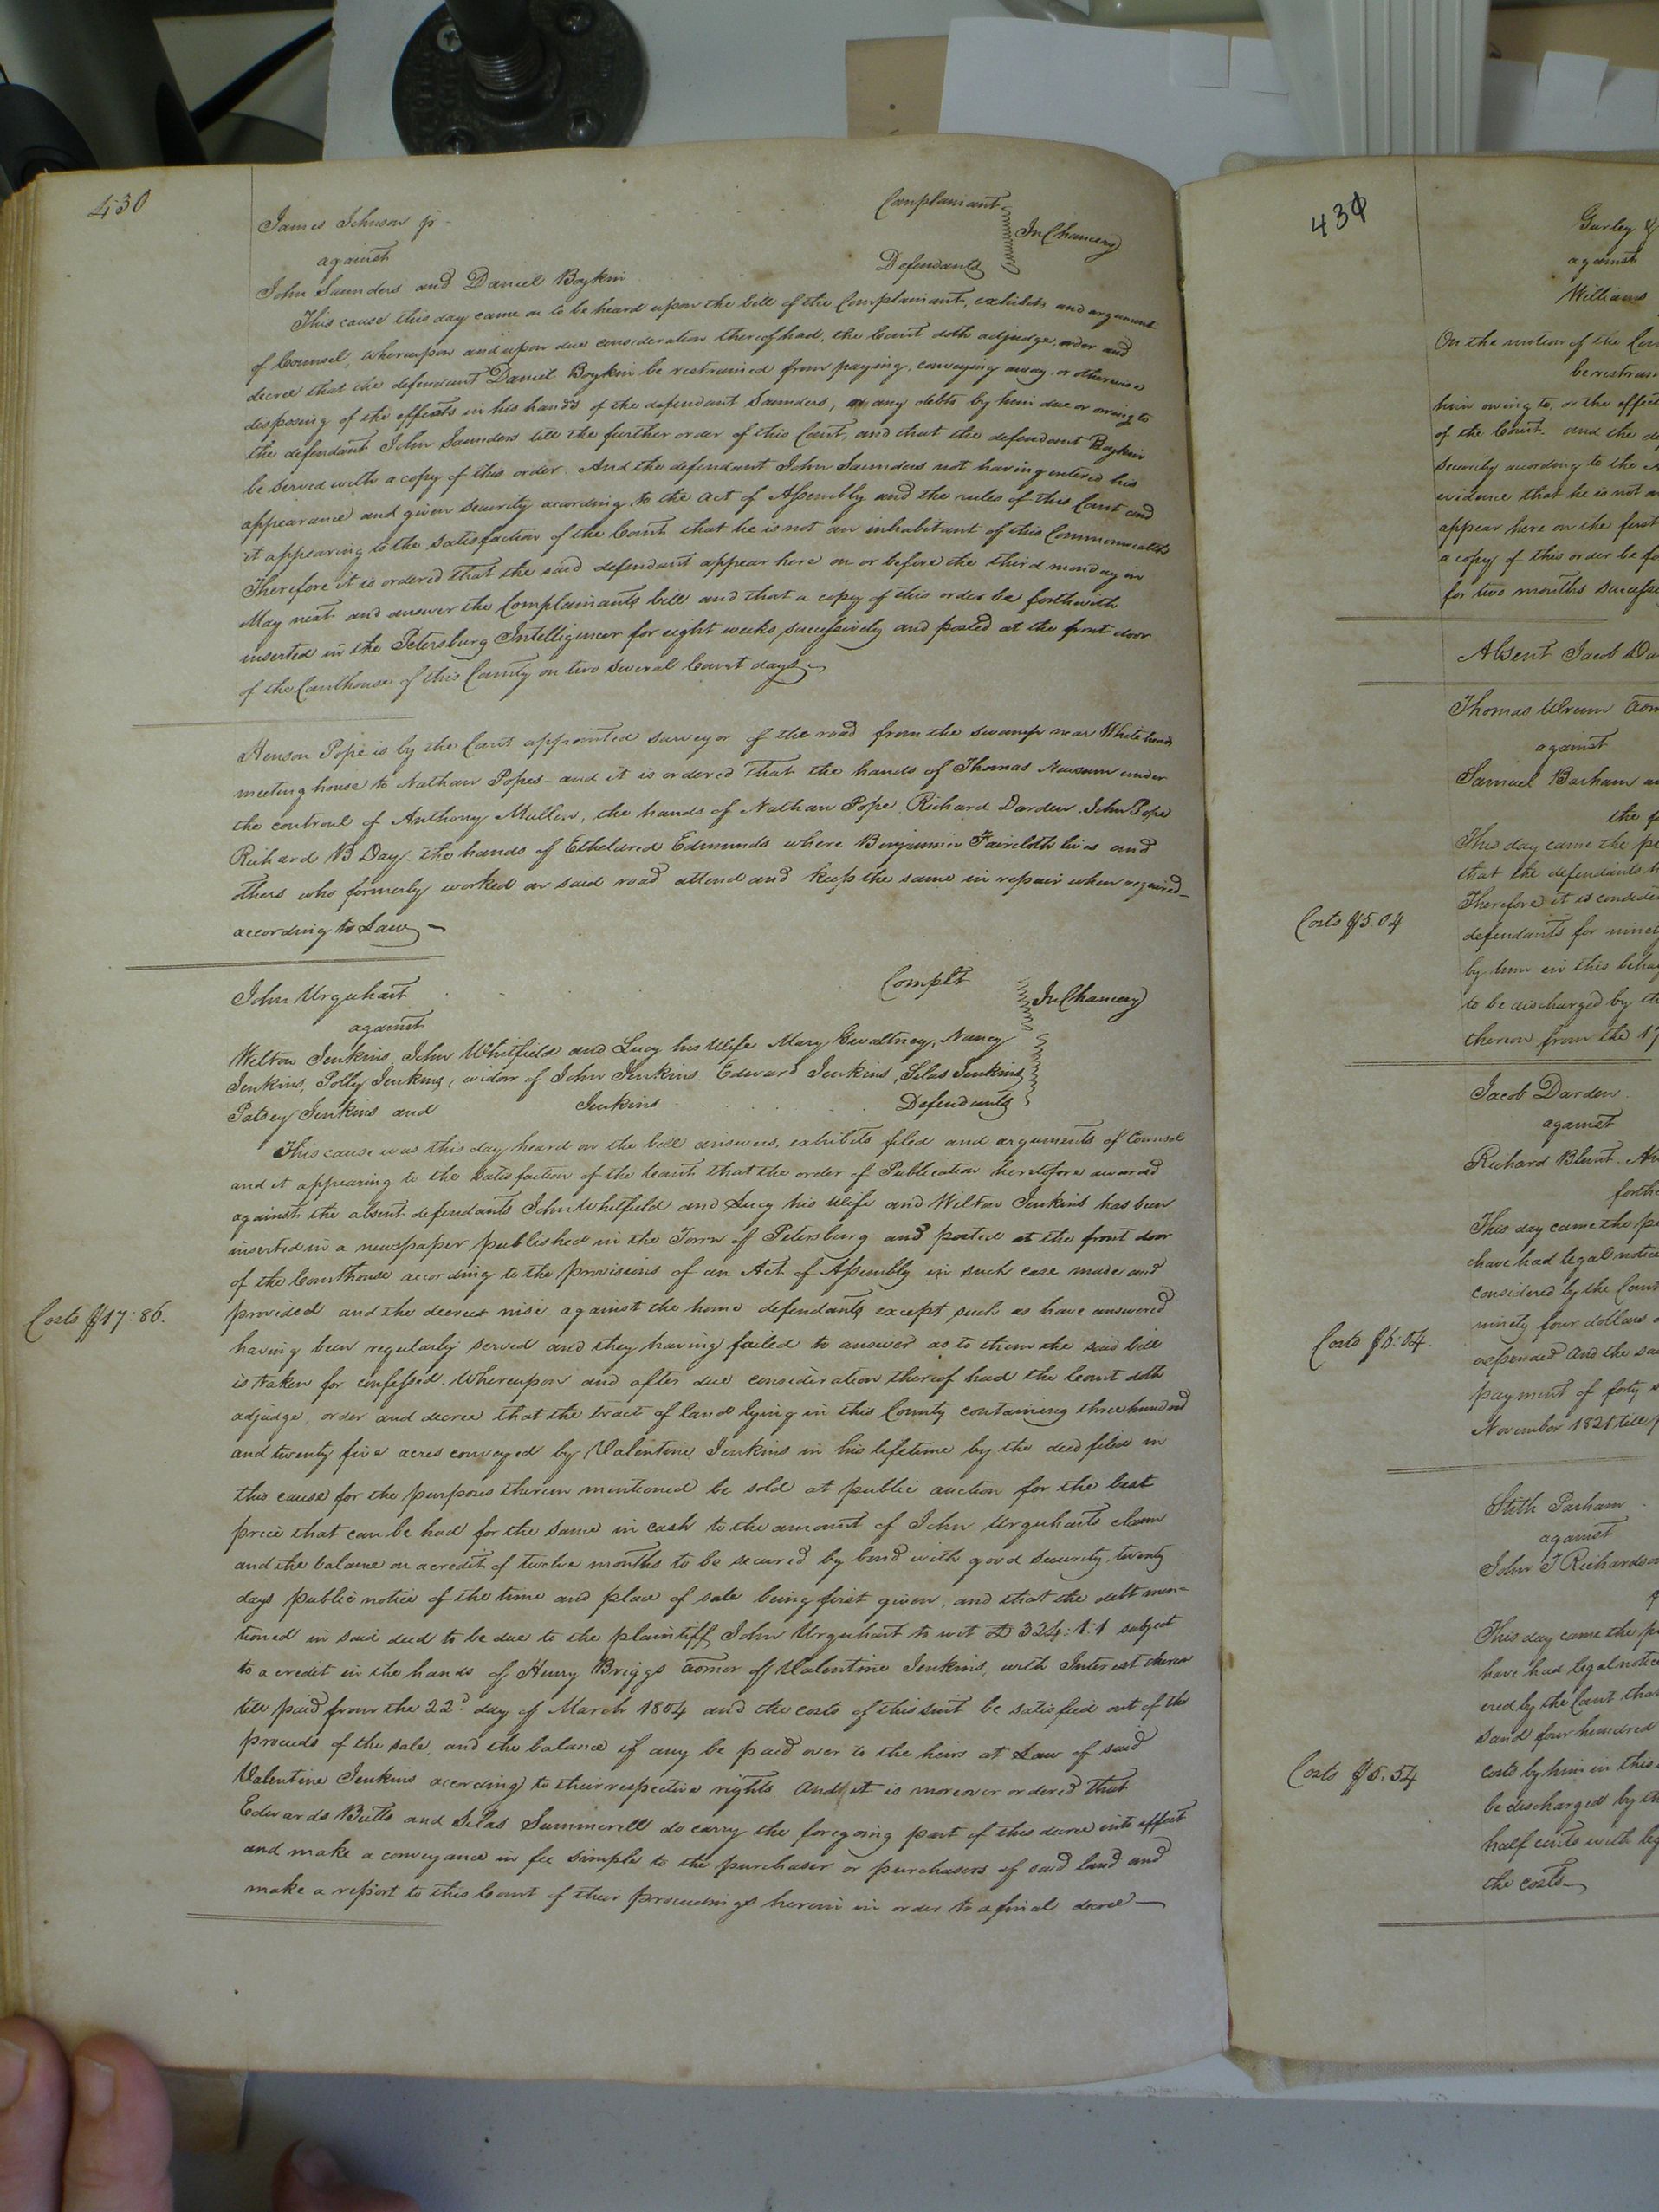 430
James Johnson jr Complainant
against In Chancery
John Saunders and Daniel Boykin Defendants
This cause this day came on to be heard upon the bill of the Complainant, exhibits and argument
of Counsel, whereupon and upon due consideration thereof had, the Court doth adjudge, order and
decree that the defendant Daniel Boykin be restrained from paying, conveying away or otherwise
disposing of the effects in his hands of the defendant Saunders, or any debts by him due or owing to
the defendant John Saunders till the further order of this Court, and that the defendant Boykin
be served with a copy of this order. And the defendant John Saunders not having entered his
appearance and given security according to the act of Assembly and the rules of this Court and
it appearing to the satisfaction of the Court that he is not an inhabitant of this Commonwealth
Therefore it is ordered that the said defendant appear here on or before the third monday in
May next and answer the Complainants bill and that a copy of this order be forthwith
inserted in the Petersburg Intelligencer for eight weeks successively and posted at the front door
of the Courthouse of this County on two several Court days
Henson Pope is by the Court appointed surveyor of the road from the swamp near Whitehead
meeting house to Nathan Popes - and it is ordered that the hands of Thomas Newsum under
the controul of Anthony Mullen, the hands of Nathan Pope, Richard Darden, John Pope
Richard B Day, the hands of Etheldred Edmunds where Benjamin Faircloth lives and
others who formerly worked on said road attend and keep the same in repair when required
according to Law
John Urquhart Complt
against In Chancery
Wilton Jenkins, John Whitfield and Lucy his Wife Mary Gwaltney, Nancy
Jenkins, Polly Jenkins, widow of John Jenkins, Edward Jenkins, Silas Jenkins
Patsey Jenkins and Jenkins Defendants
This cause was this day heard on the bill answers, exhibits filed and arguments of Counsel
and it appearing to the satisfaction of the Court that the order of Publication heretofore awarded
against the absent defendants John Whitfield and Lucy his Wife and Wilton Jenkins has been
inserted in a newspaper published in the Town of Petersburg and posted at the front door
of the Courthouse according to the provisions of an Act of Assembly in such case made and
Costs $17:86. provided and the decree nisi against the home defendants except such as have answered
having been regularly served and they having failed to answer as to them the said bill
is taken for confessed. Whereupon and after due consideration thereof had the Court doth
adjudge, order and decree that the tract of land lying in this County containing three hundred
and twenty five acres conveyed by Valentine Jenkins in his lifetime by the deed filed in
this cause for the purposes therein mentioned be sold at public auction for the best
price that can be had for the same in cash to the amount of John Urquharts claim
and the balance on a credit of twelve months to be secured by bond with good security, twenty
days public notice of the time and place of sale being first given, and that the debt men=
tioned in said deed to be due to the plaintiff John Urquhart to wit £324:1:1 subject
to a credit in the hands of Henry Briggs admor of Valentine Jenkins, with Interest thereon
till paid from the 22d day of March 1804 and the costs of this suit be satisfied out of the
proceeds of the sale, and the balance if any be paid over to the heirs at Law of said
Valentine Jenkins according to their respective rights And it is moreover ordered that
Edwards Butts and Silas Summerell do carry the foregoing part of this decree into effect
and make a conveyance in fee simple to the purchaser or purchasers of said land and
make a report to this Court of their proceedings herein in order to a final decree
431
Gurley &
against
Williams
On the motion of the
be restrain
him owing to, or the effec
of the Court. and the de
security according to the A
evidence that he is not an
appear here on the first
a copy of this order be fo
for two months successi
Absent Jacob Da
Thomas Urum adm
against
Samuel Barham an
This day came the p
that the defendants h
Therefore it is consider
Costs $5.04 defendants for ninety
by him in this beha
to be discharged by th
thereon from the 17
Jacob Darden
against
Richard Blunt.
forthc
This day came the p
have had legal notice
considered by the Cour
ninety four dollars
Costs $5.04. expended And the sa
payment of forty
November 1821 till p
Stith Parham
against
John T Richardson
This day came the p
have had legal notice
ered by the Court tha
sand four hundred
Costs $5.54 costs by him in this
be discharged by th
half cents with leg
the costs